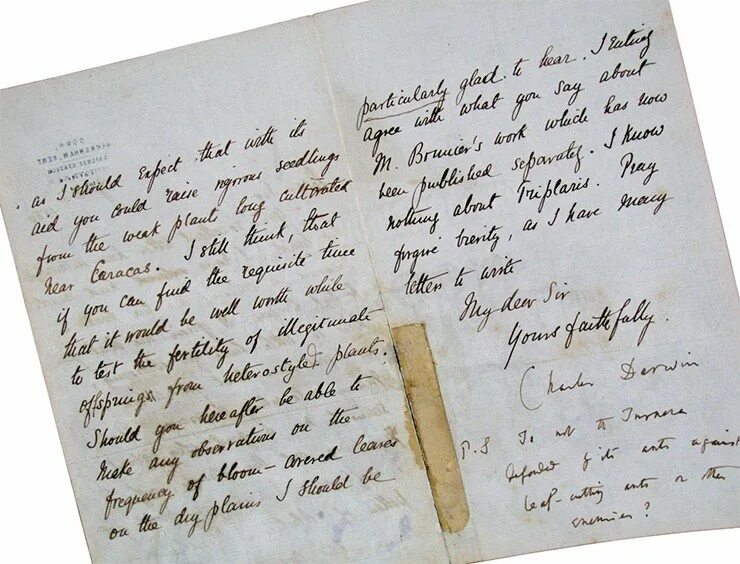 as I should expect that with its
aid you could raise vigorous seedlings
from the weak plant long cultivated
near Caracas. I still think, that
if you can find the requisite time
that it would be well worth while
to test the fertility of illegitimate
offsprings from heterostyled plants.
Should you hereafter be able to
make any observations on the
frequency of bloom-covered leaves
on the dry plains I should be
particularly glad to hear. I entirely
agree with what you say about
M. Bonnier's work which has now
been published separately. I know
nothing about Triplaris. Pray
forgive brevity, as I have many
letters to write
My dear Sir
Yours faithfully.
Charles Darwin
P.S Is not the Turnera
defended by its ants against
leaf-cutting ants or other
enemies?
DOWN,
BECKENHAM, KENT.
RAILWAY STATION